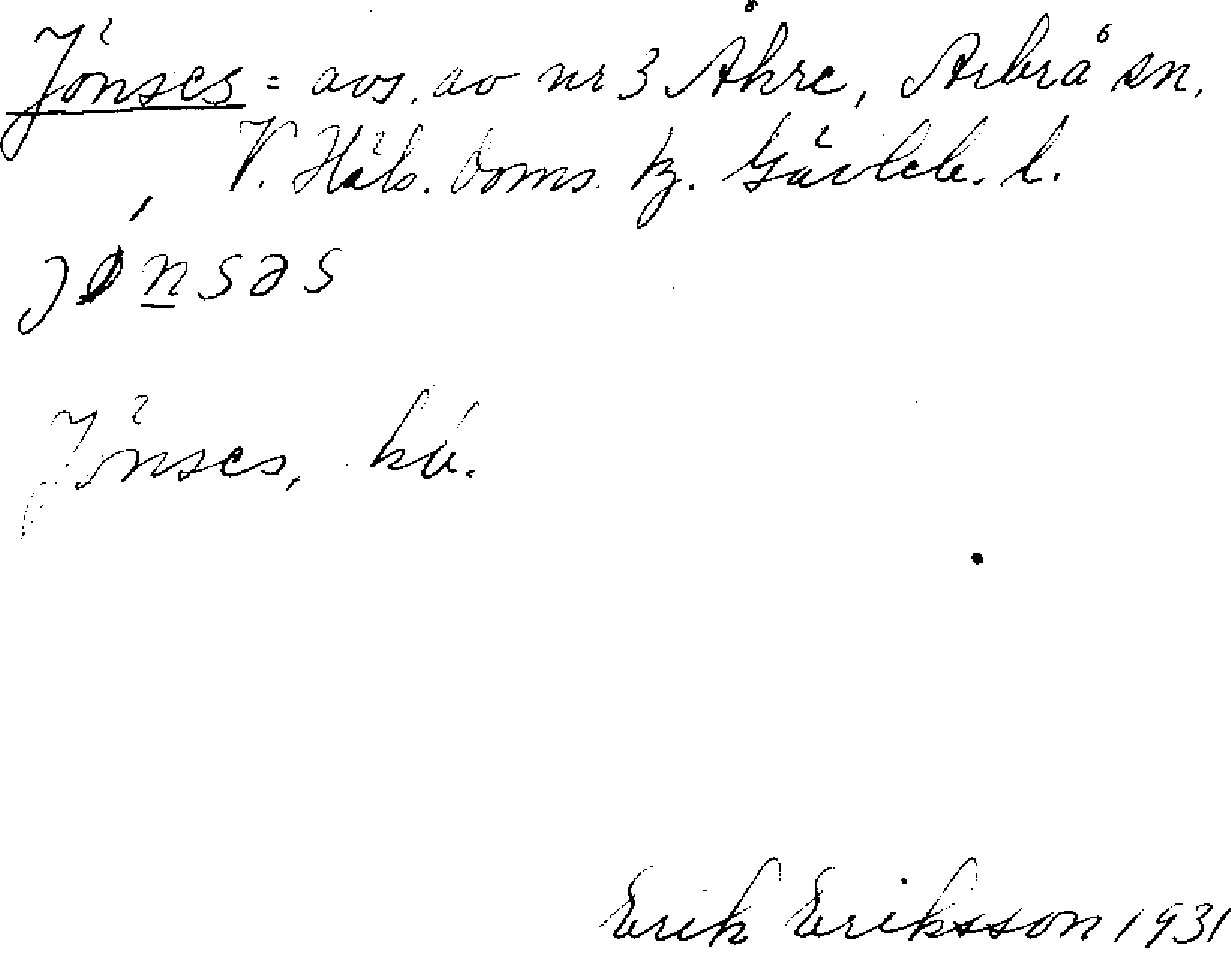 Jönses = avs. av nr 3 Åkre, Arbrå sn.
V. Häls. doms. tz. Gävleb. l.
jǿnsəs
Jönses, bú.
Erik Eriksson 1931